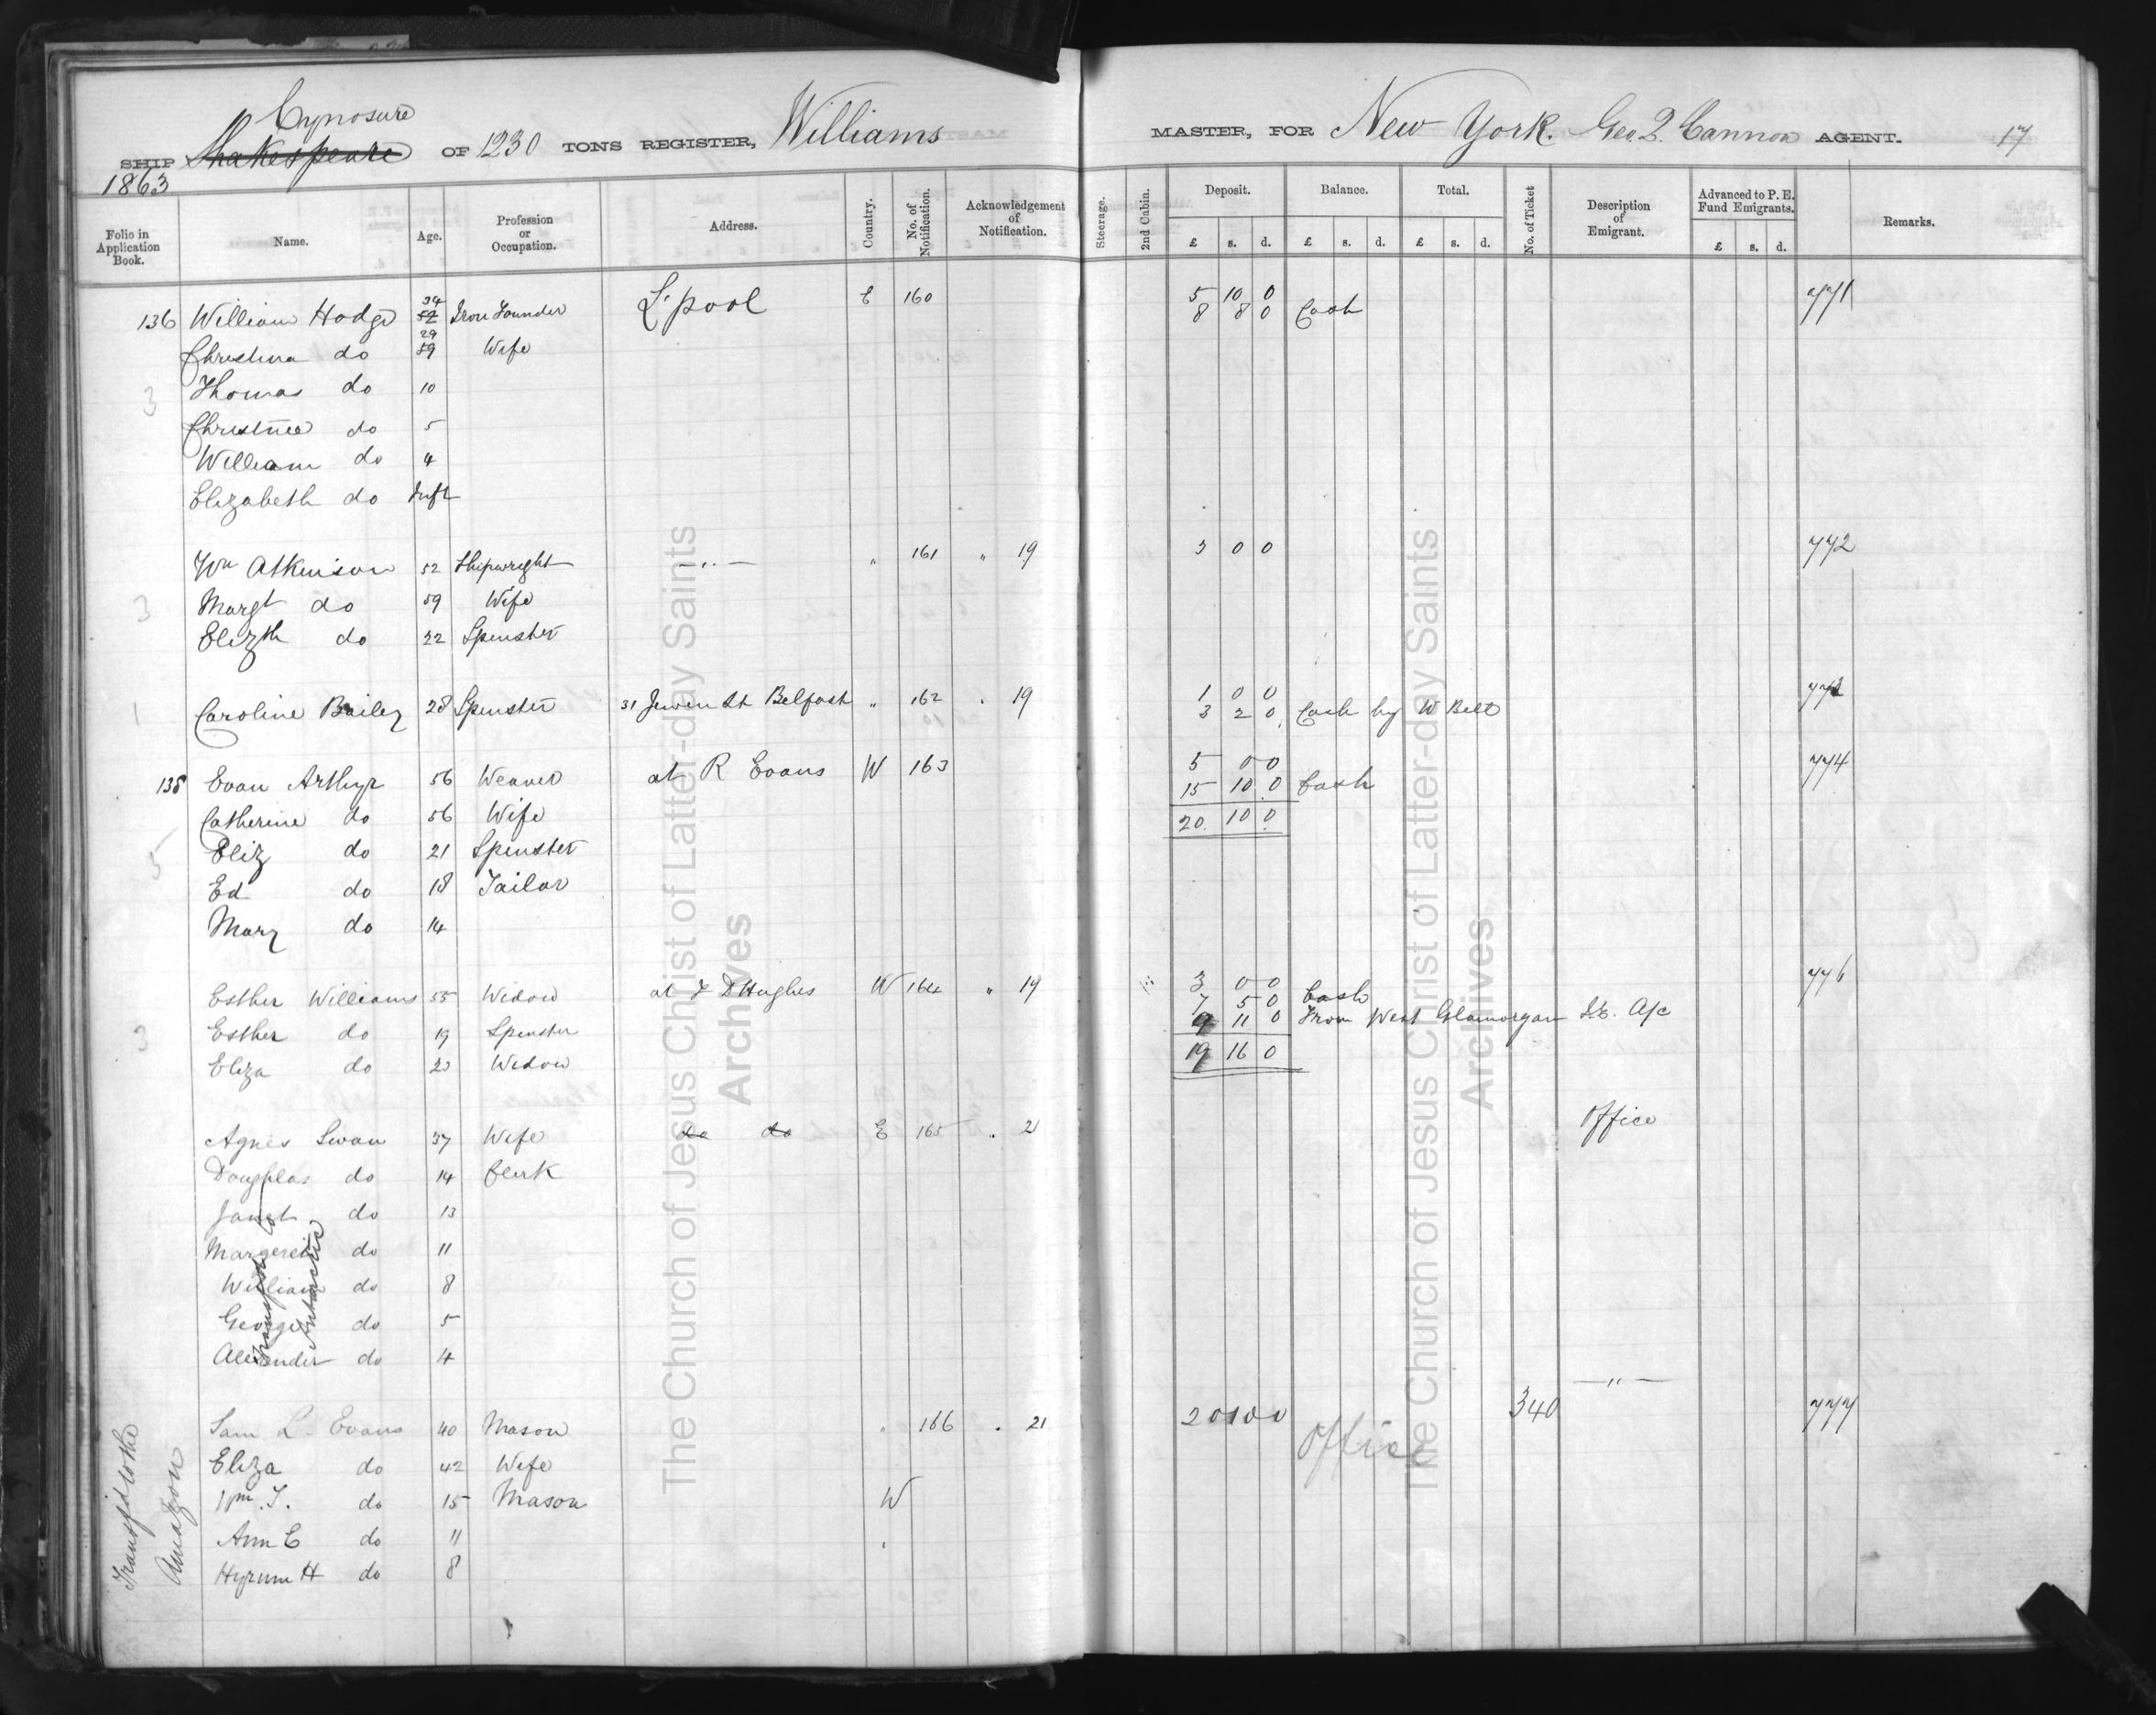 Cynosure
SHIP Shakespeare OF 1230 TONS REGISTER, Williams MASTER, FOR New York. Geo. Q. Cannon AGENT. 17
1863
Folio in Application Book. Name. Age. Profession or Occupation. Address. Country. No. of Notification. Acknowledgement of Notification. Steerage. 2nd Cabin. Deposit. Balance. Total. No. of Ticket Description of Emigrant. Advanced to P. E. Fund Emigrants. Remarks.
£ s. d. £ s. d. £ s. d. £ s. d.
136 William Hodge 34 Iron Founder L'pool E 160 5 10 0 771
8 8 0 Cash
Christina do 29 Wife
3 Thomas do 10
Christina do 5
William do 4
Elizabeth do Inft
Wm Atkinson 52 Shipwright —"— " 161 " 19 3 0 0 772
3 Margt do 59 Wife
Elizth do 22 Spinster
1 Caroline Bailey 28 Spinster 31 St Belfast " 162 " 19 1 0 0 773
3 2 0 Cash by W Belt
138 Evan Arthur 56 Weaver at R Evans W 163 5 0 0 774
15 10 0 Cash
Catherine do 56 Wife 20 10 0
5 Eliz do 21 Spinster
Ed do 18 Tailor
Mary do 14
Esther Williams 55 Widow at D Hughes W 164 " 19 3 0 0 776
7 5 0 Cash
3 Esther do 19 Spinster 9 11 0 From West Glamorgan A/c
Eliza do 23 Widow 19 16 0
Agnes Swan 37 Wife do do E 165 " 21 Office
Douglas do 14 Clerk
Janet do 13
Margeret do 11
William do 8
George do 5
Alexander do 4
Transfd to Antarctic
Sam L. Evans 40 Mason " 166 " 21 20 10 0 Office 340 —"— 777
Eliza do 42 Wife
Wm. T. do 15 Mason W
Ann E do 11
Hyrum H do 8
Transfd to the Amazon
The Church of Jesus Christ of Latter-day Saints
Archives
The Church of Jesus Christ of Latter-day Saints
Archives